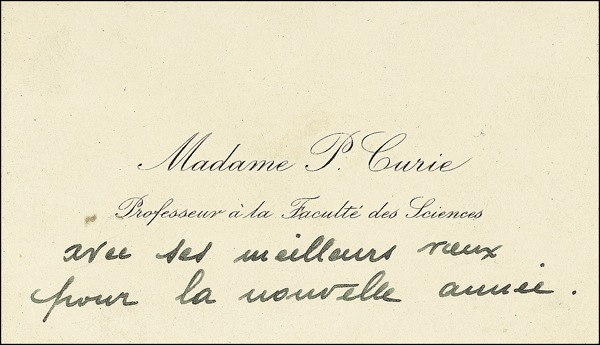 Madame P. Curie
Professeur à la Faculté des Sciences
avec ses meilleurs vœux
pour la nouvelle année.